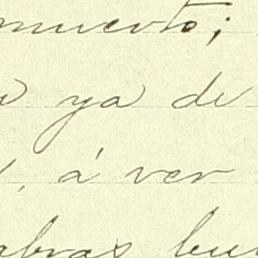 muerto;
ya de
, á ver
abras bu